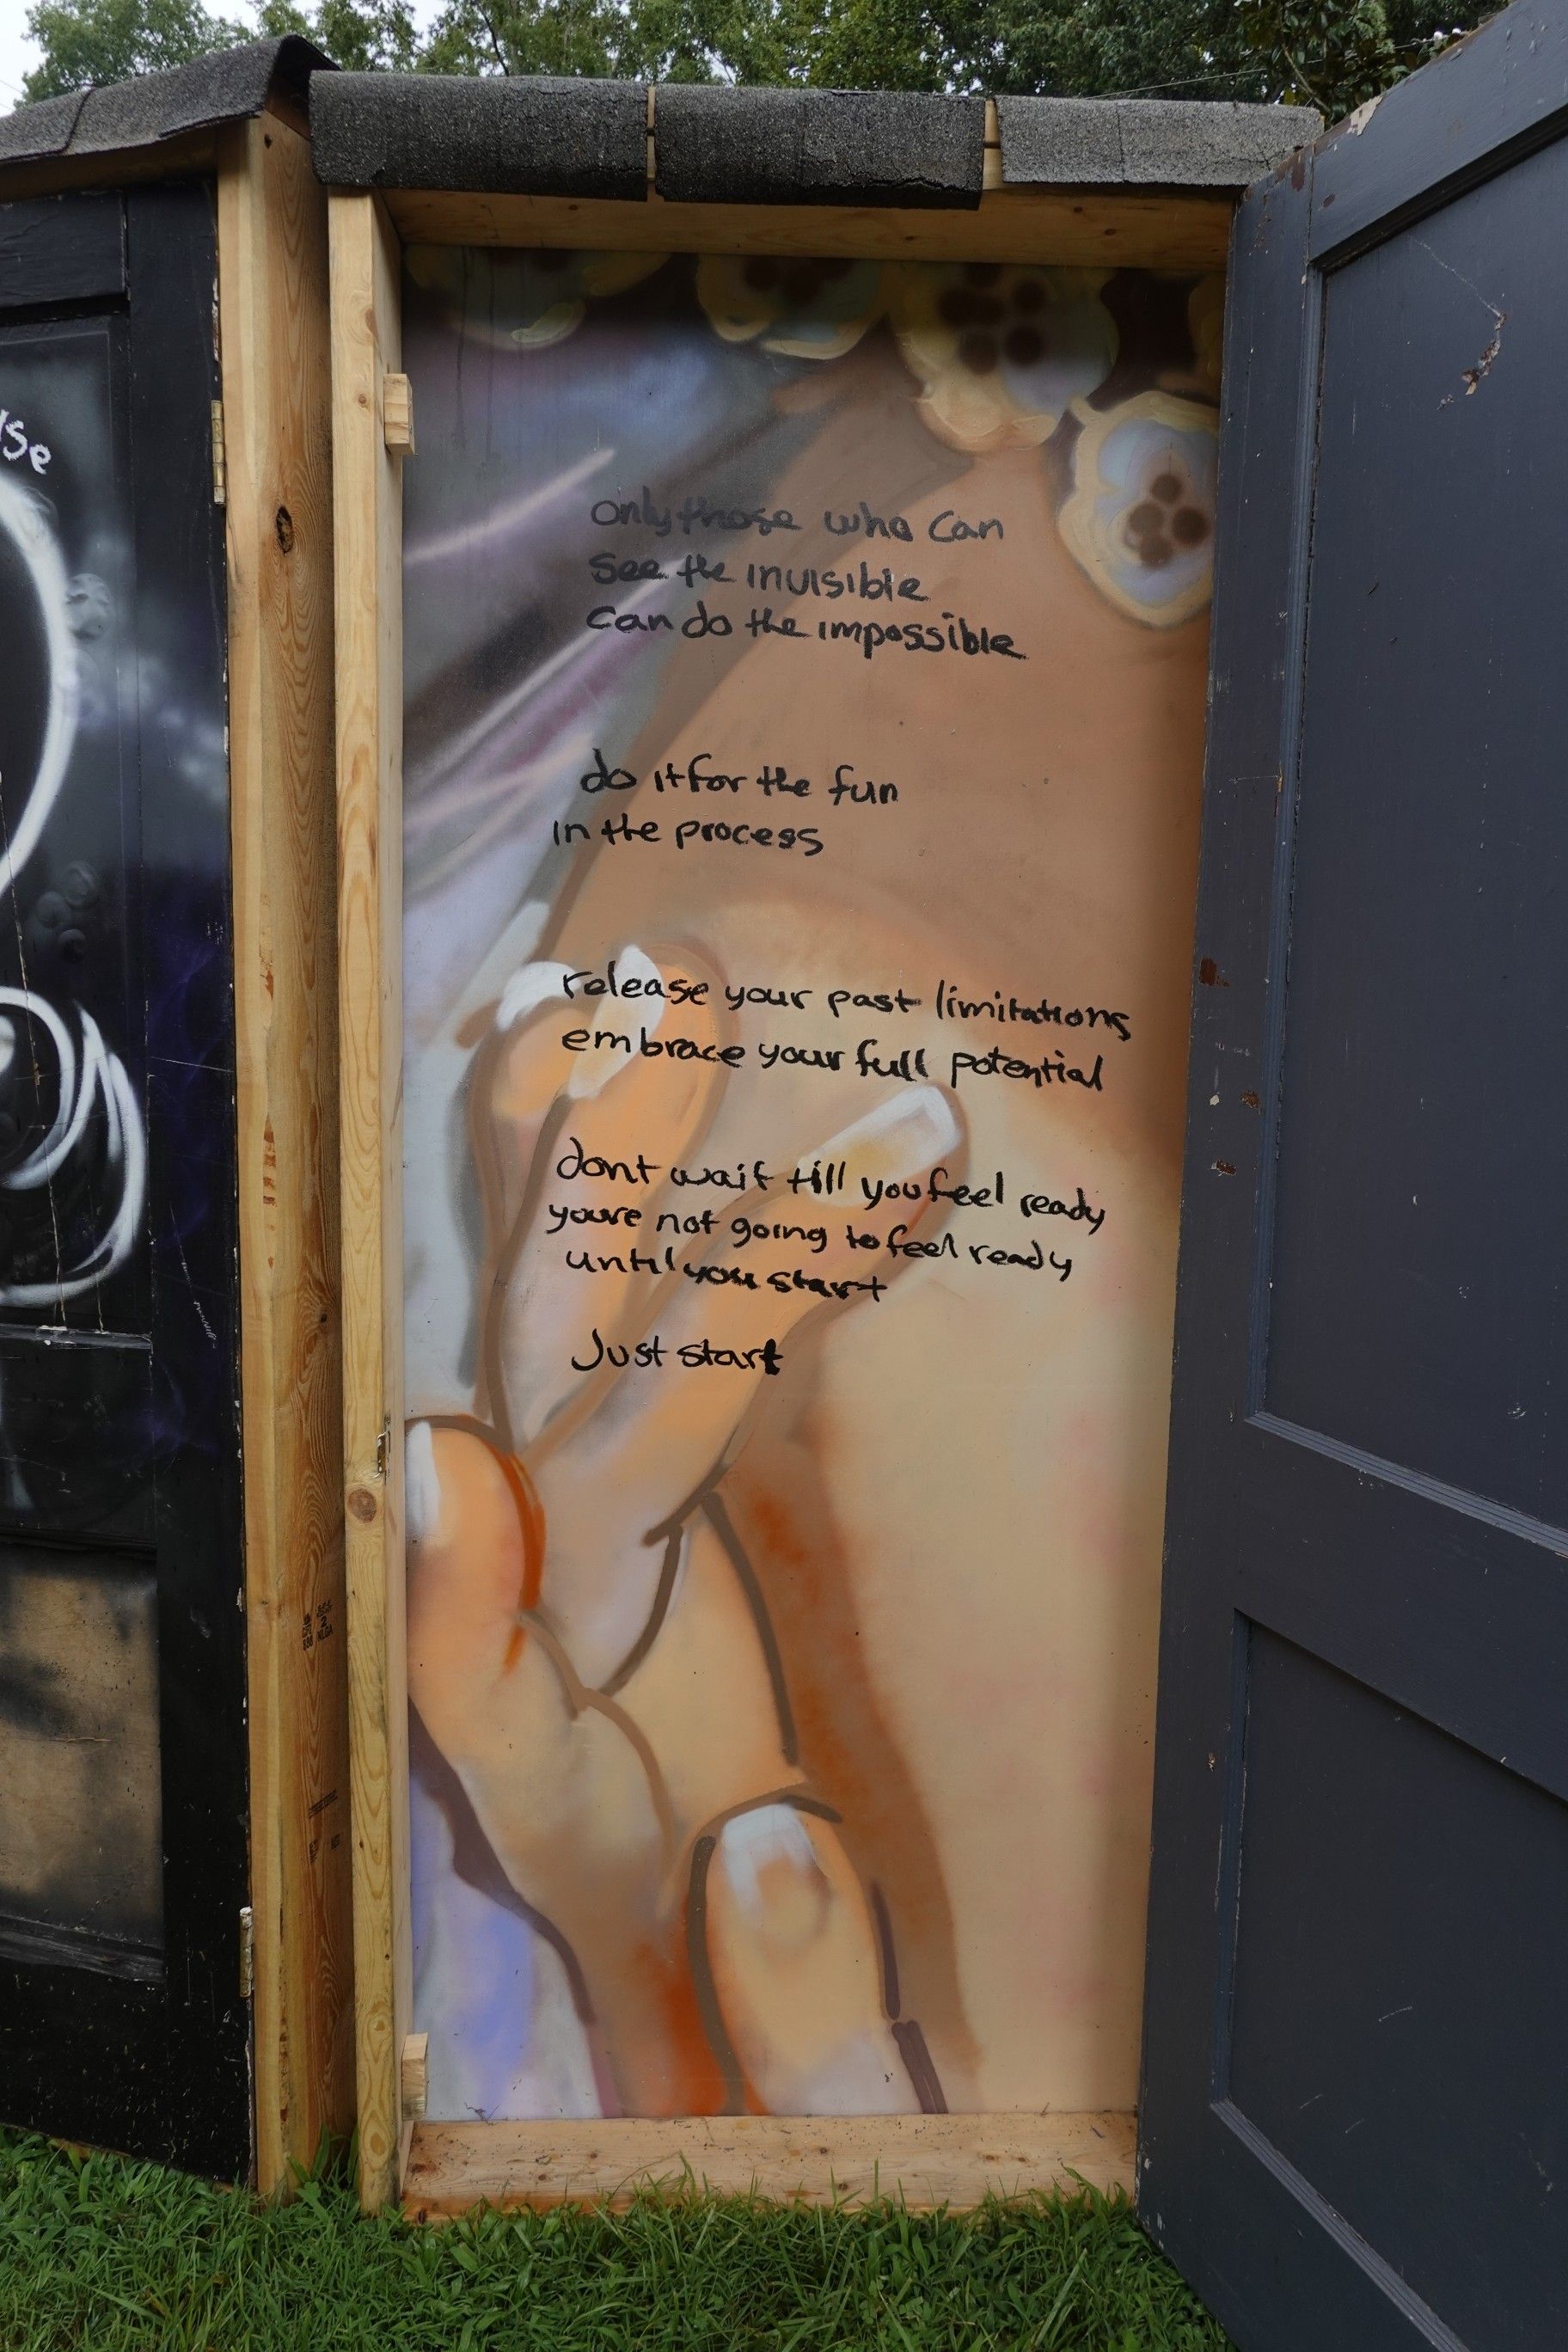 only those who can
see the invisible
can do the impossible
do it for the fun
in the process
release your past limitations
embrace your full potential
dont wait till you feel ready
youre not going to feel ready
until you start
Just start